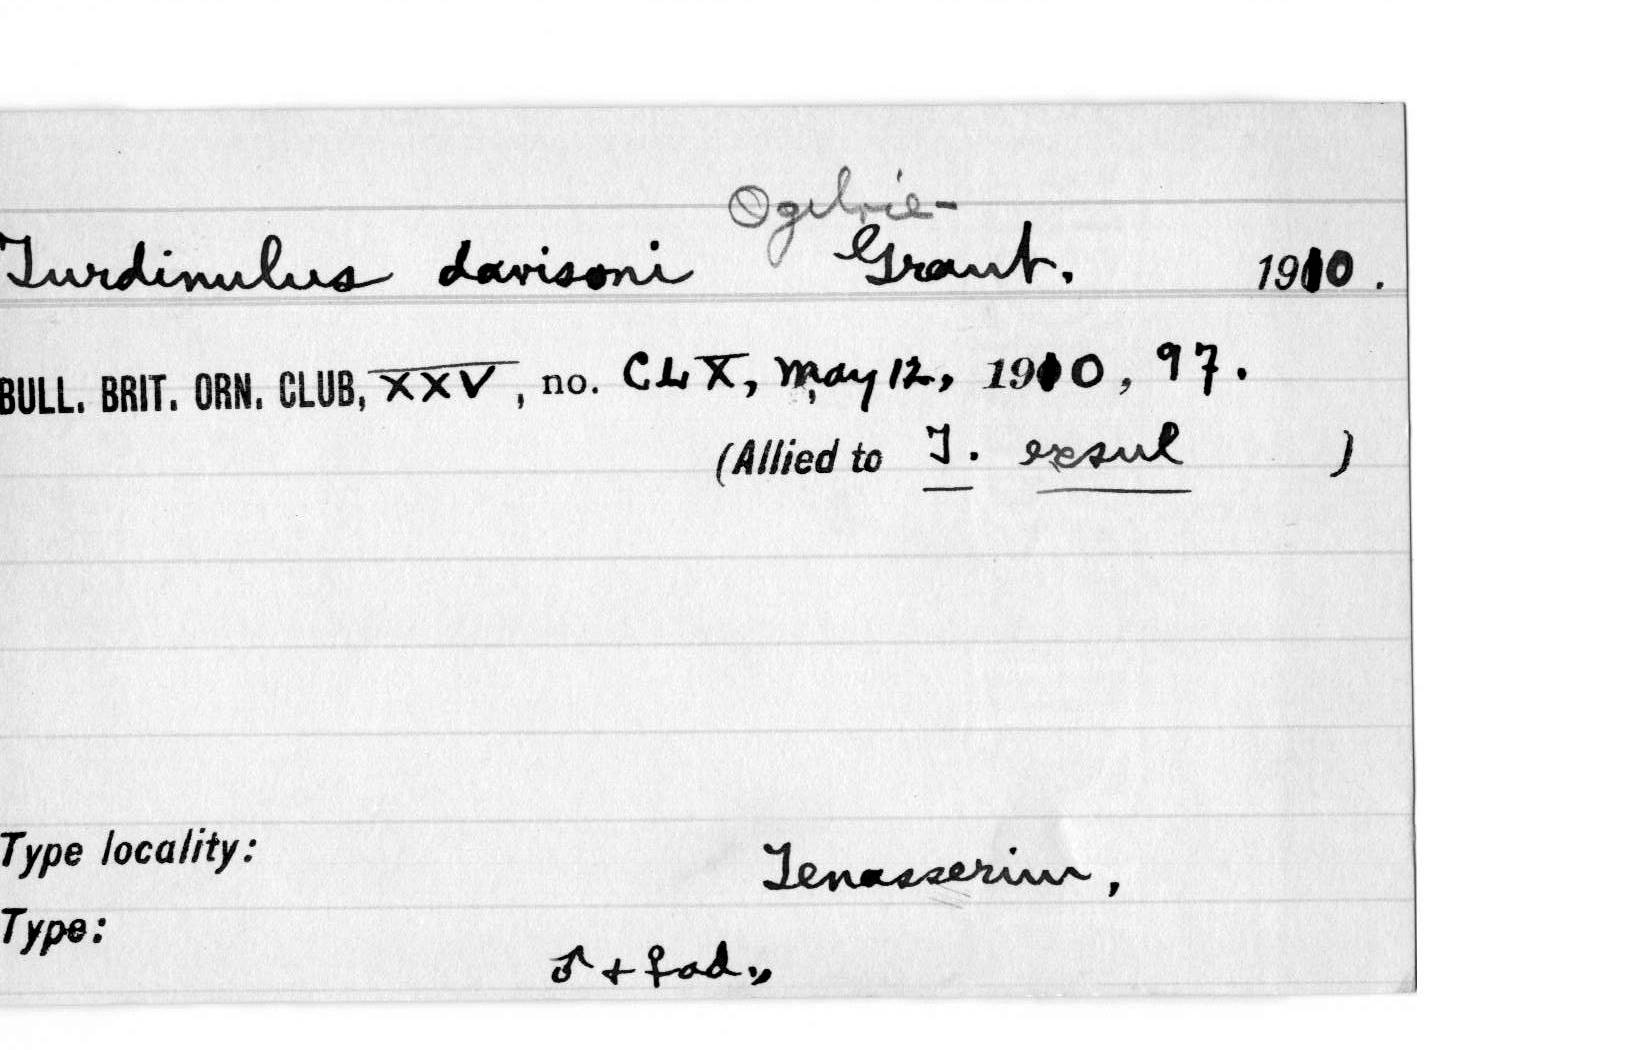 Ogilvie-
Turdinulus davisoni Grant. 1910.
BULL. BRIT. ORN. CLUB, XXV, no. CLX, May 12, 1910, 97.
(Allied to T. exsul )
Type locality: Tenasserim,
Type: ♂ + ♀ ad.,